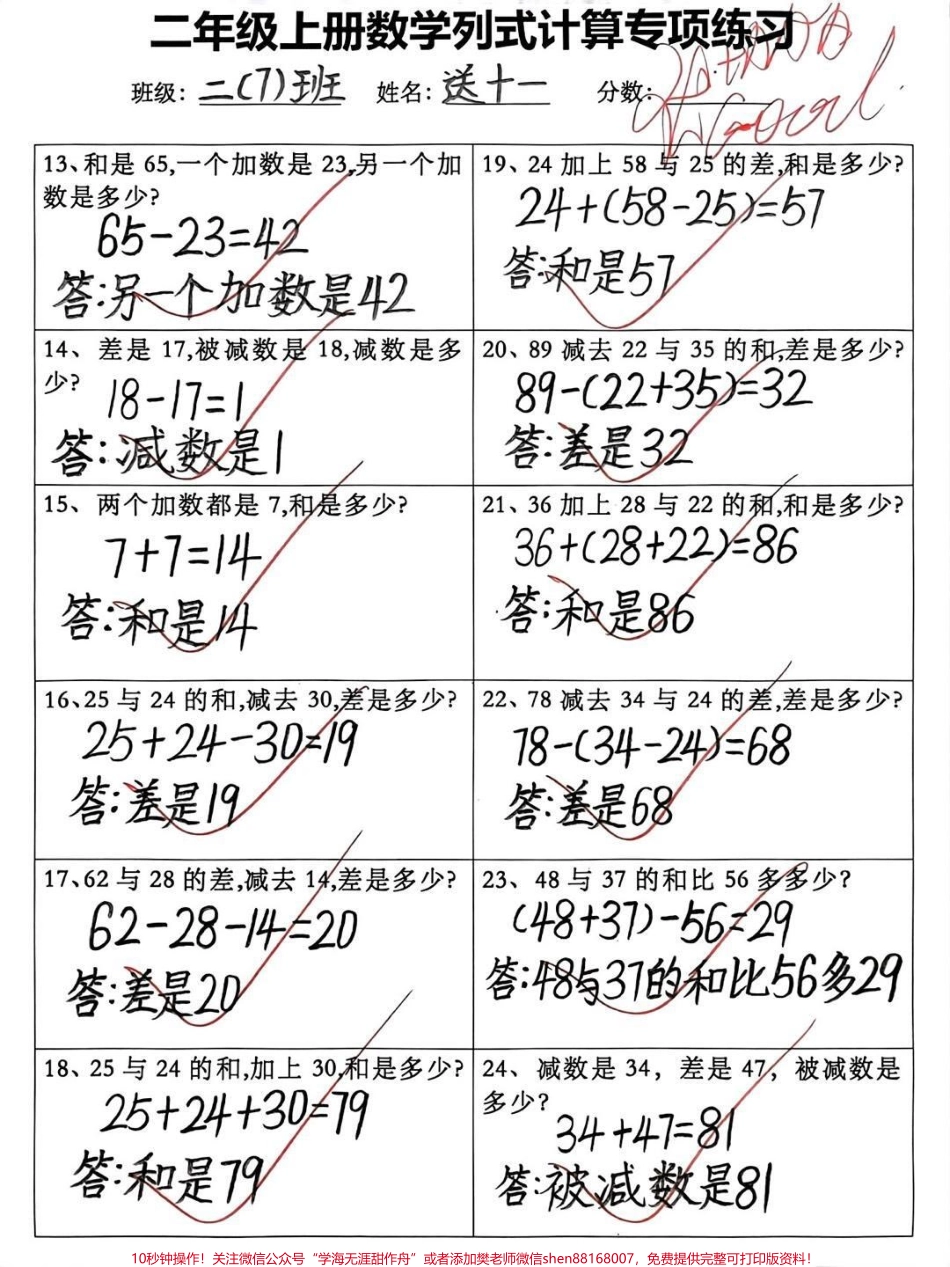 二年级上册数学列式计算专项练习
班级：二(7)班 姓名：送十一 分数：
13、和是 65,一个加数是 23,另一个加
数是多少?
65-23=42
答:另一个加数是42
14、差是 17,被减数是 18,减数是多
少?
18-17=1
答:减数是1
15、两个加数都是 7,和是多少?
7+7=14
答:和是14
16、25 与 24 的和,减去 30,差是多少?
25+24-30=19
答:差是19
17、62 与 28 的差,减去 14,差是多少?
62-28-14=20
答:差是20
18、25 与 24 的和,加上 30,和是多少?
25+24+30=79
答:和是79
19、24 加上 58 与 25 的差,和是多少?
24+(58-25)=57
答:和是57
20、89 减去 22 与 35 的和,差是多少?
89-(22+35)=32
答:差是32
21、36 加上 28 与 22 的和,和是多少?
36+(28+22)=86
答:和是86
22、78 减去 34 与 24 的差,差是多少?
78-(34-24)=68
答:差是68
23、48 与 37 的和比 56 多多少?
(48+37)-56=29
答:48与37的和比56多29
24、减数是 34，差是 47，被减数是
多少?
34+47=81
答:被减数是81
10秒钟操作！关注微信公众号“学海无涯甜作舟”或者添加樊老师微信shen88168007，免费提供完整可打印版资料！